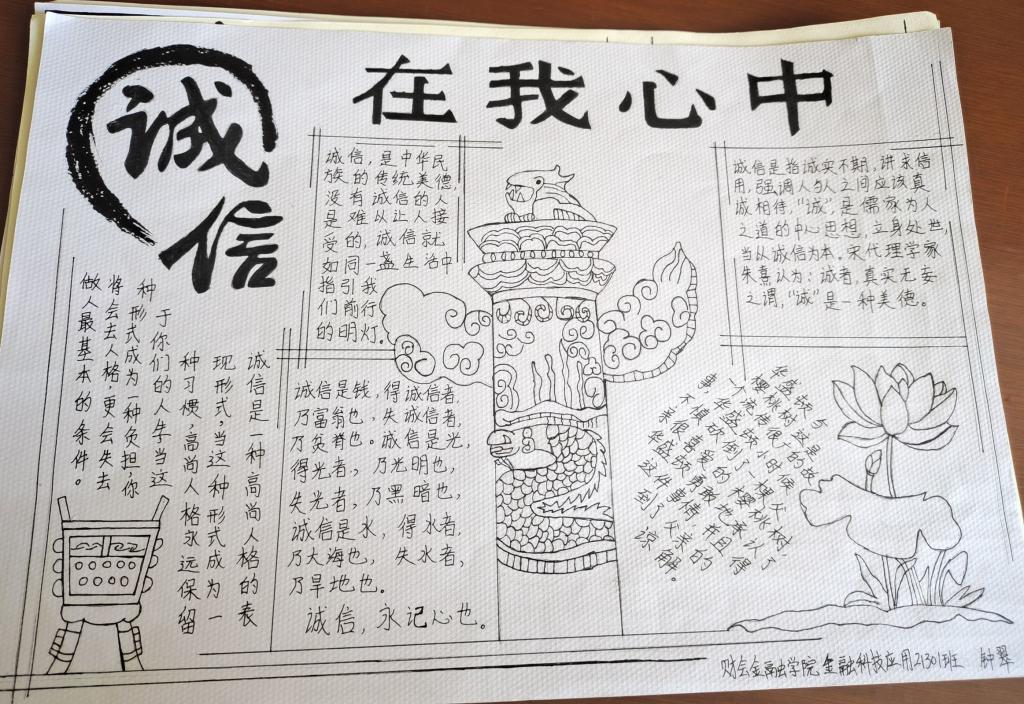 诚信
在我心中
诚信，是中华民
族的传统美德，
没有诚信的人
是难以让人接
受的，诚信就
如同一盏生活中
指引我
们前行
的明灯。
诚信是指诚实不期，讲求信
用，强调人与人之间应该真
诚相待，“诚”，是儒家为人
之道的中心思想，立身处世，
当从诚信为本。宋代理学家
朱熹认为：诚者，真实无妄
之谓，“诚”是一种美德。
诚信是一种高尚人格的表
现形式，当这种形式成为一
种习惯，高尚人格永远保留
于你们的人生当这
种形式成为一种负担你
将会去人格，更会失去
做人最基本的条件。
诚信是钱，得诚信者，
乃富翁也，失诚信者，
乃贫脊也。诚信是光，
得光者，乃光明也，
失光者，乃黑暗也，
诚信是水，得水者，
乃大海也，失水者，
乃旱地也。
诚信，永记心也。
华盛顿与
樱桃树这是
一个流传很广的故
事，华盛顿小时候
不慎砍倒了一棵父
亲很喜爱的樱桃树，
华盛顿勇敢地承认了
这件事情，并且得
到了父亲的
谅解。
财会金融学院 金融科技应用21301班 钟翠